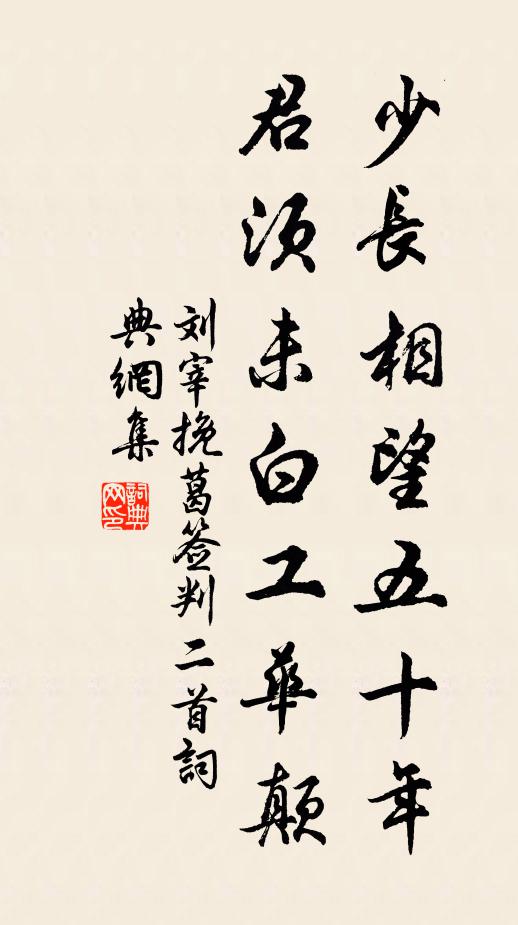 少長相望五十年
君須未白工華顛
刘宰挽葛簽判二首詞
典網集
詞典网印